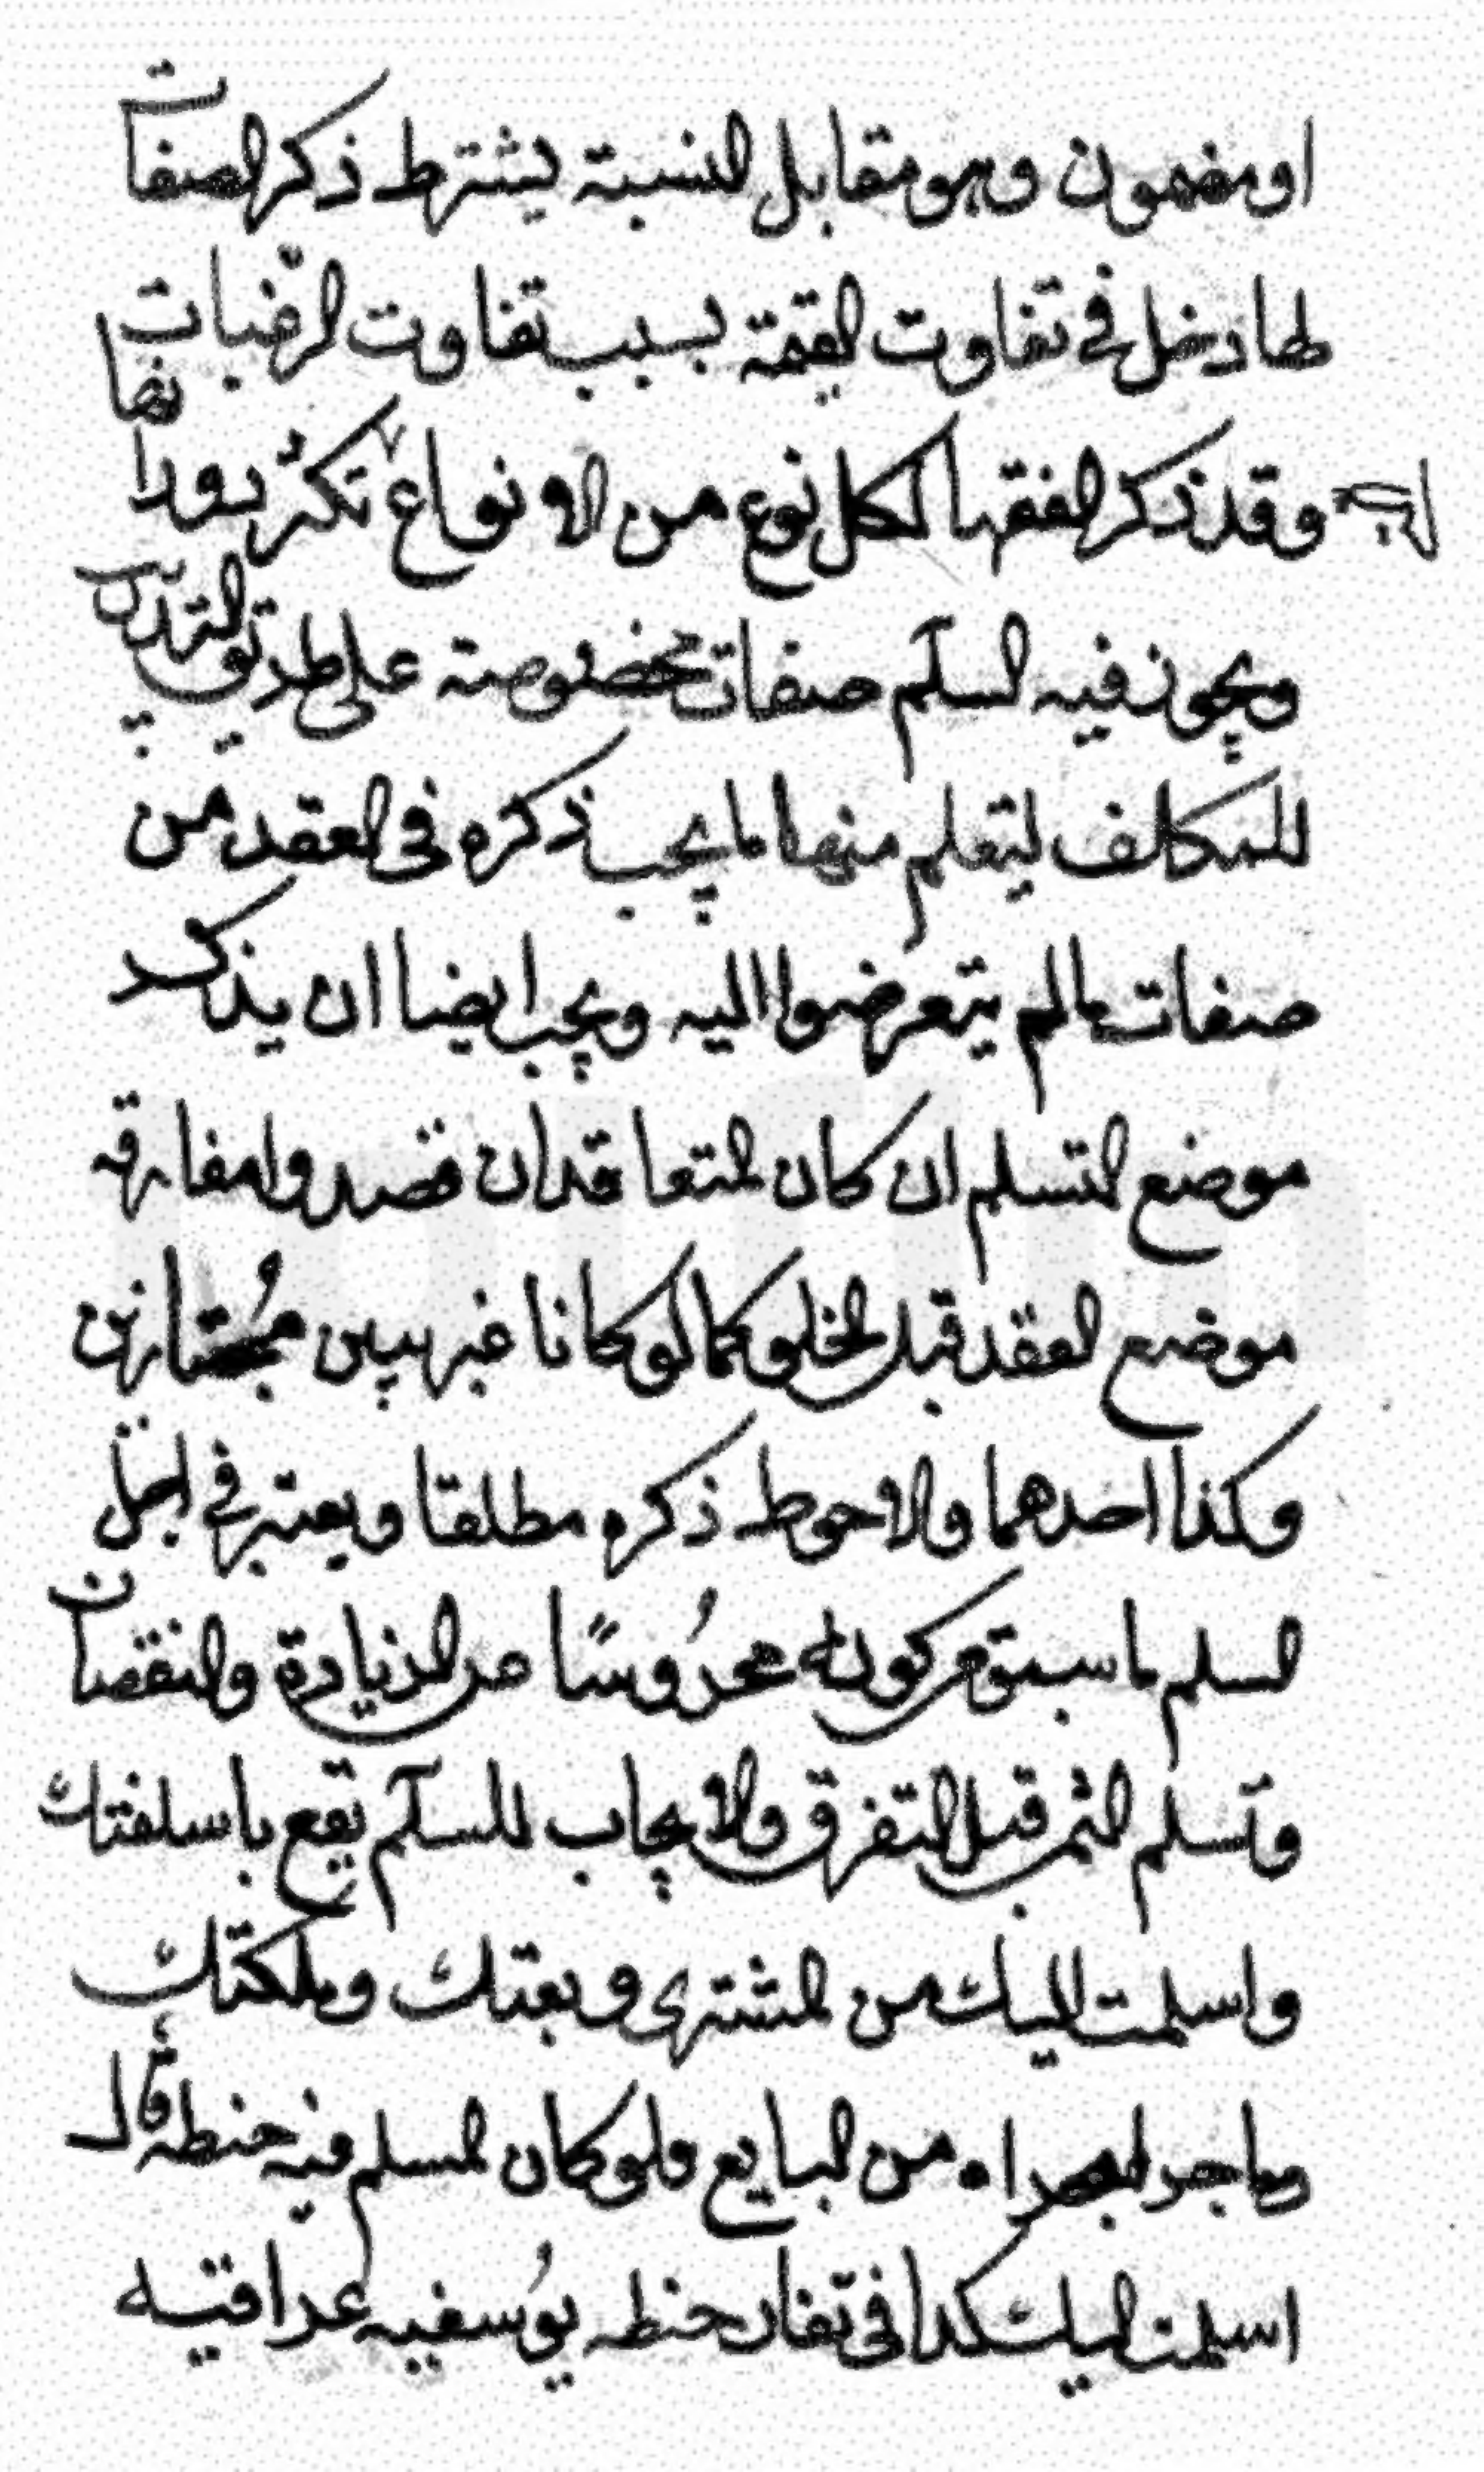 او مضمون وهو مقابل النسبة يشترط ذكر الصفات
لها دخل في تفاوت القيمة بسبب تفاوت الرغبات
وقد ذكر الفقها لكل نوع من الانواع تكثر دورانها
ويجوز فيه السلم صفات مخصوصة على طريق التدريب
للمكلف ليتعلم منها ما يجب ذكره في العقد من
صفات ما لم يتعرضوا اليه ويجب ايضا ان يذكر
موضع التسلم ان كان المتعاقدان قصدوا مفارقه
موضع العقد قبل الحلول كما لو كانا غريبين مجتازين
وكذا احدهما والاحوط ذكره مطلقا ويعتبر في اجل
السلم ما سبق من كونه محروسًا من الزيادة والنقصان
وتسلم الثمن قبل التفرق والايجاب للسلم يقع باسلفتك
واسلمت اليك من المشتري وبعتك وملكتك
وما جر مجراه من البايع فلو كان المسلم فيه حنطه قال
اسلمت اليك كذا في تغار حنطه يوسفيه عراقيه